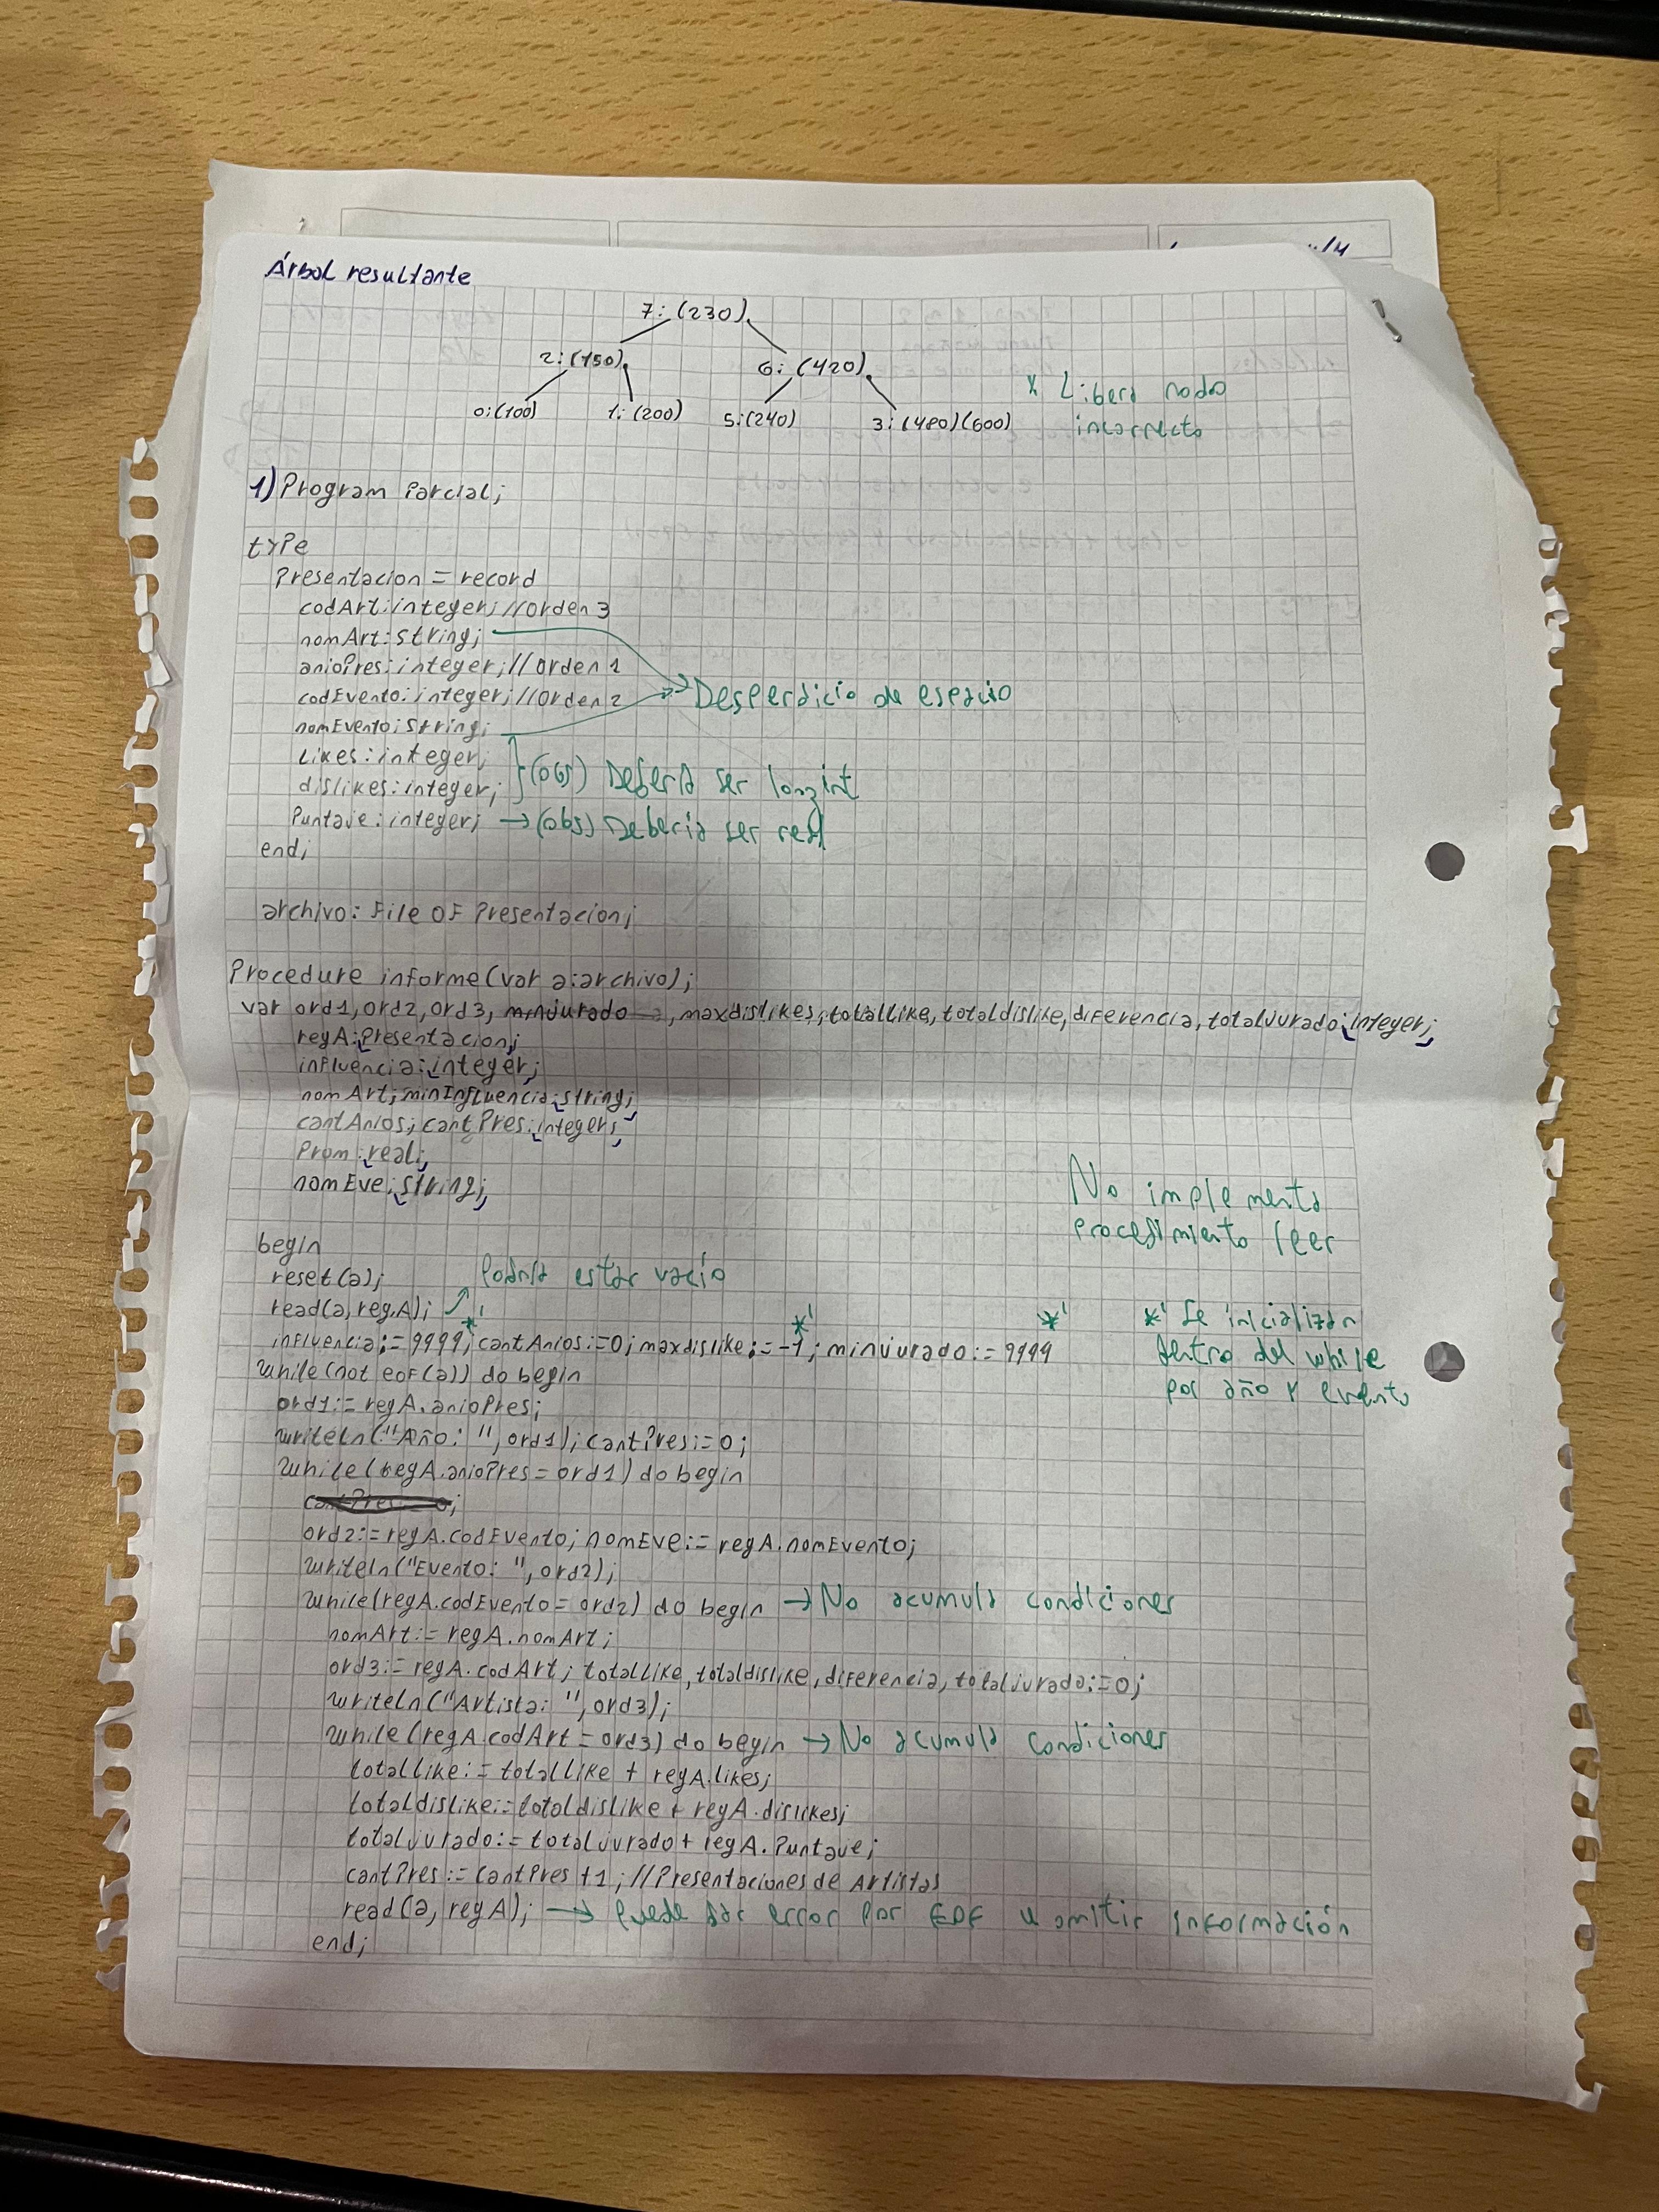 Árbol resultante
7: (230)
2: (150) 6: (420)
0: (100) 1: (200) 5: (240) 3: (480)(600)
* Libera nodo
incorrecto
1) Program Parcial;
type
Presentacion = record
codArt: integer; //Orden 3
nomArt: string;
anioPres: integer; //Orden 1
codEvento: integer; //Orden 2
→ Desperdicio de espacio
nomEvento: string;
Likes: integer;
dislikes: integer; } (obs) Debería ser longint
Puntaje: integer; → (obs) Debería ser real
end;
archivo: File OF Presentacion;
Procedure informe(var a: archivo);
var ord1, ord2, ord3, minjurado, maxdislikes, totallike, totaldislike, diferencia, totaljurado: integer;
regA: Presentacion;
influencia: integer;
nomArt, minInfluencia: string;
cantAnios, cantPres: integer;
Prom: real;
nomEve: string;
No implementa
procedimiento leer
begin
reset(a); Podría estar vacío
read(a, regA);
influencia := 9999; cantAnios := 0; maxdislike := -1; minjurado := 9999
*' *' *' *' Se inicializan
dentro del while
por año y evento
while (not eof(a)) do begin
ord1 := regA.anioPres;
writeln("Año: ", ord1); cantPres := 0;
while (regA.anioPres = ord1) do begin
ord2 := regA.codEvento; nomEve := regA.nomEvento;
writeln("Evento: ", ord2);
while (regA.codEvento = ord2) do begin → No acumula condiciones
nomArt := regA.nomArt;
ord3 := regA.codArt; totallike, totaldislike, diferencia, totaljurado := 0;
writeln("Artista: ", ord3);
while (regA.codArt = ord3) do begin → No acumula condiciones
totallike := totallike + regA.likes;
totaldislike := totaldislike + regA.dislikes;
totaljurado := totaljurado + regA.Puntaje;
cantPres := cantPres + 1; //Presentaciones de Artistas
read(a, regA); → Puede dar error por EOF u omitir información
end;